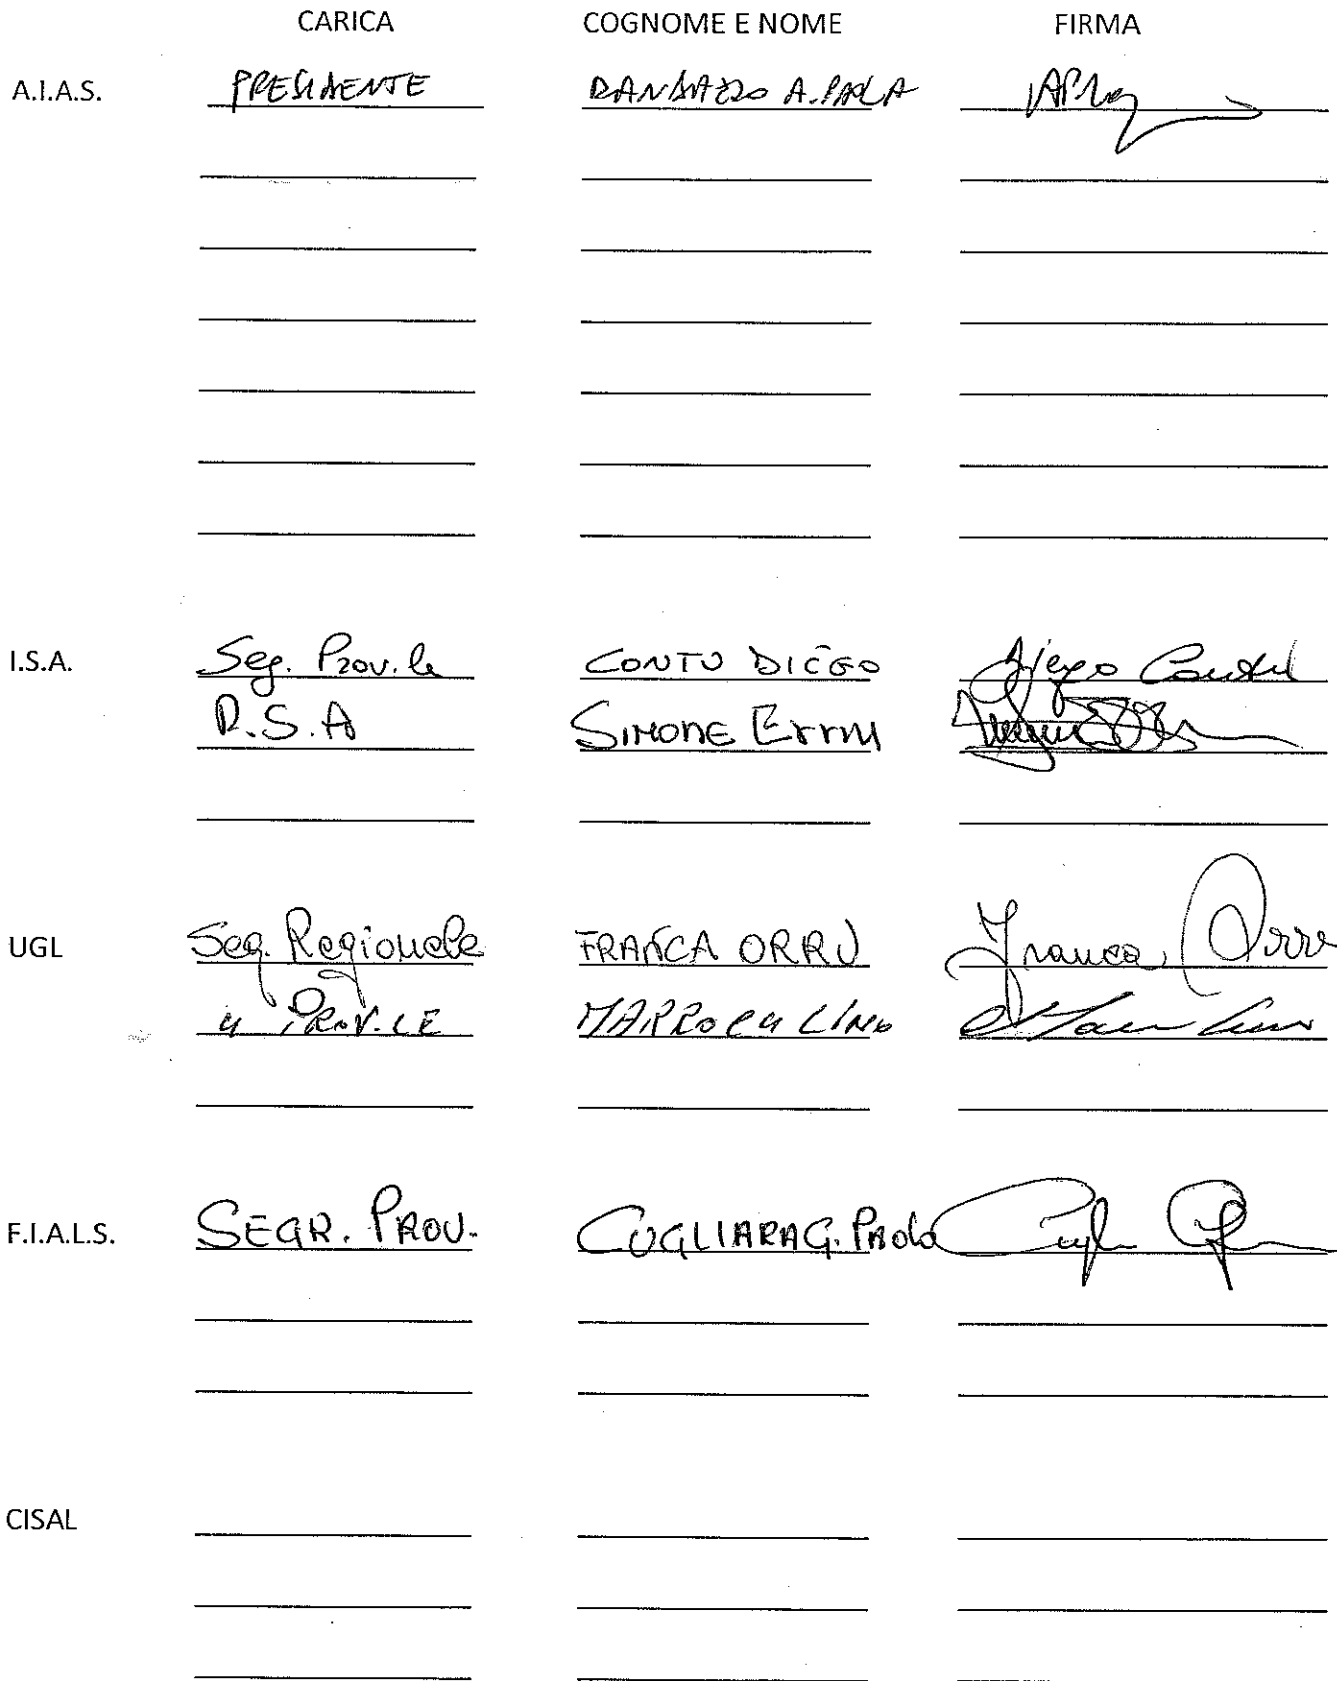 CARICA COGNOME E NOME FIRMA
A.I.A.S. PRESIDENTE RANDAZZO A. PAOLA
I.S.A. Seg. Prov.le CONTU DIEGO Diego Contu
R.S.A SIMONE
UGL Seg. Regionale FRANCA ORRÙ Franca Orru
" PROV.LE MARROCU LINO
F.I.A.L.S. SEGR. PROV. CUGLIARA G. PAOLO
CISAL